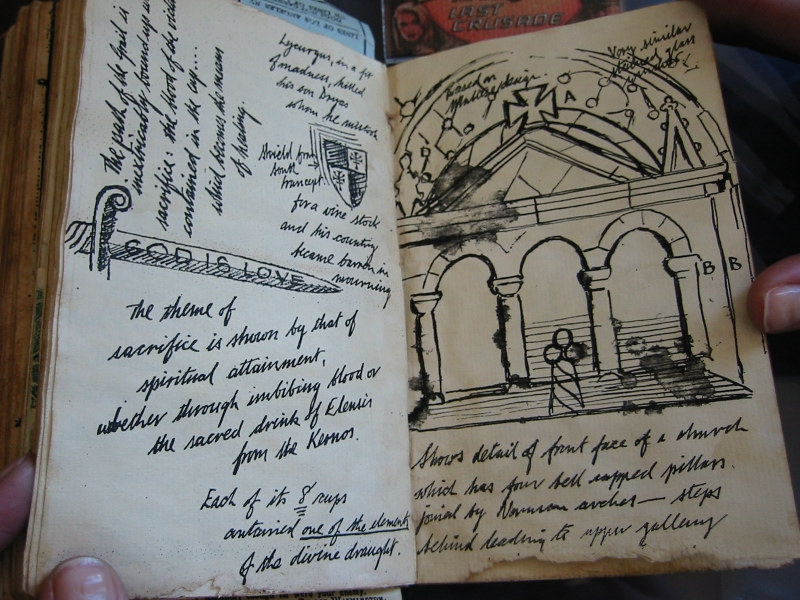 LAST
CRUSADE
The path of the Grail is
inextricably bound up
sacrifice: the blood of the
contained in the cup....
which becomes the means
of healing.
Lycurgus, in a fit
of madness, killed
his son Dryas
whom he mistook
Shield from
south
transept
for a vine stock
and his country
became barren in
mourning
GOD IS LOVE
The theme of
sacrifice is shown by that of
spiritual attainment,
whether through imbibing blood or
the sacred drink of Eleusis
from the Kernos.
Each of its 8 cups
contained one of the elements
of the divine draught.
based on
Very similar
stained glass
windows
A
B B
Shows detail of front face of a church
which has four bell capped pillars.
joined by Norman arches — steps
behind leading to upper gallery
your enemy.